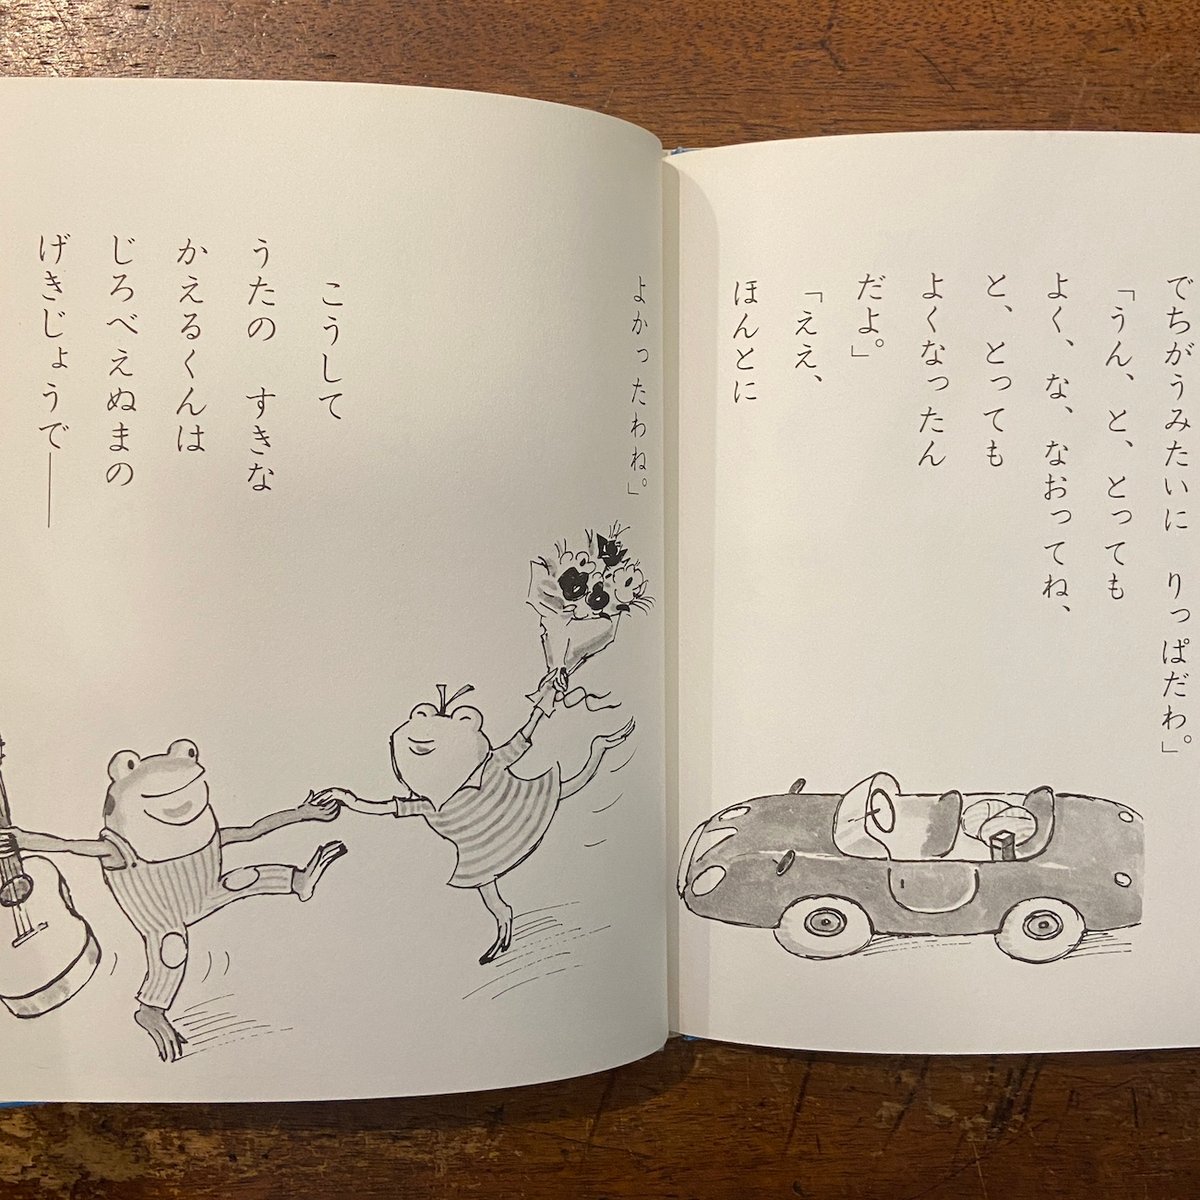 でちがうみたいに　りっぱだわ。」
「うん、と、とっても
よく、な、なおってね、
と、とっても
よくなったん
だよ。」
「ええ、
ほんとに
よかったわね。」
こうして
うたの　すきな
かえるくんは
じろべえぬまの
げきじょうで――